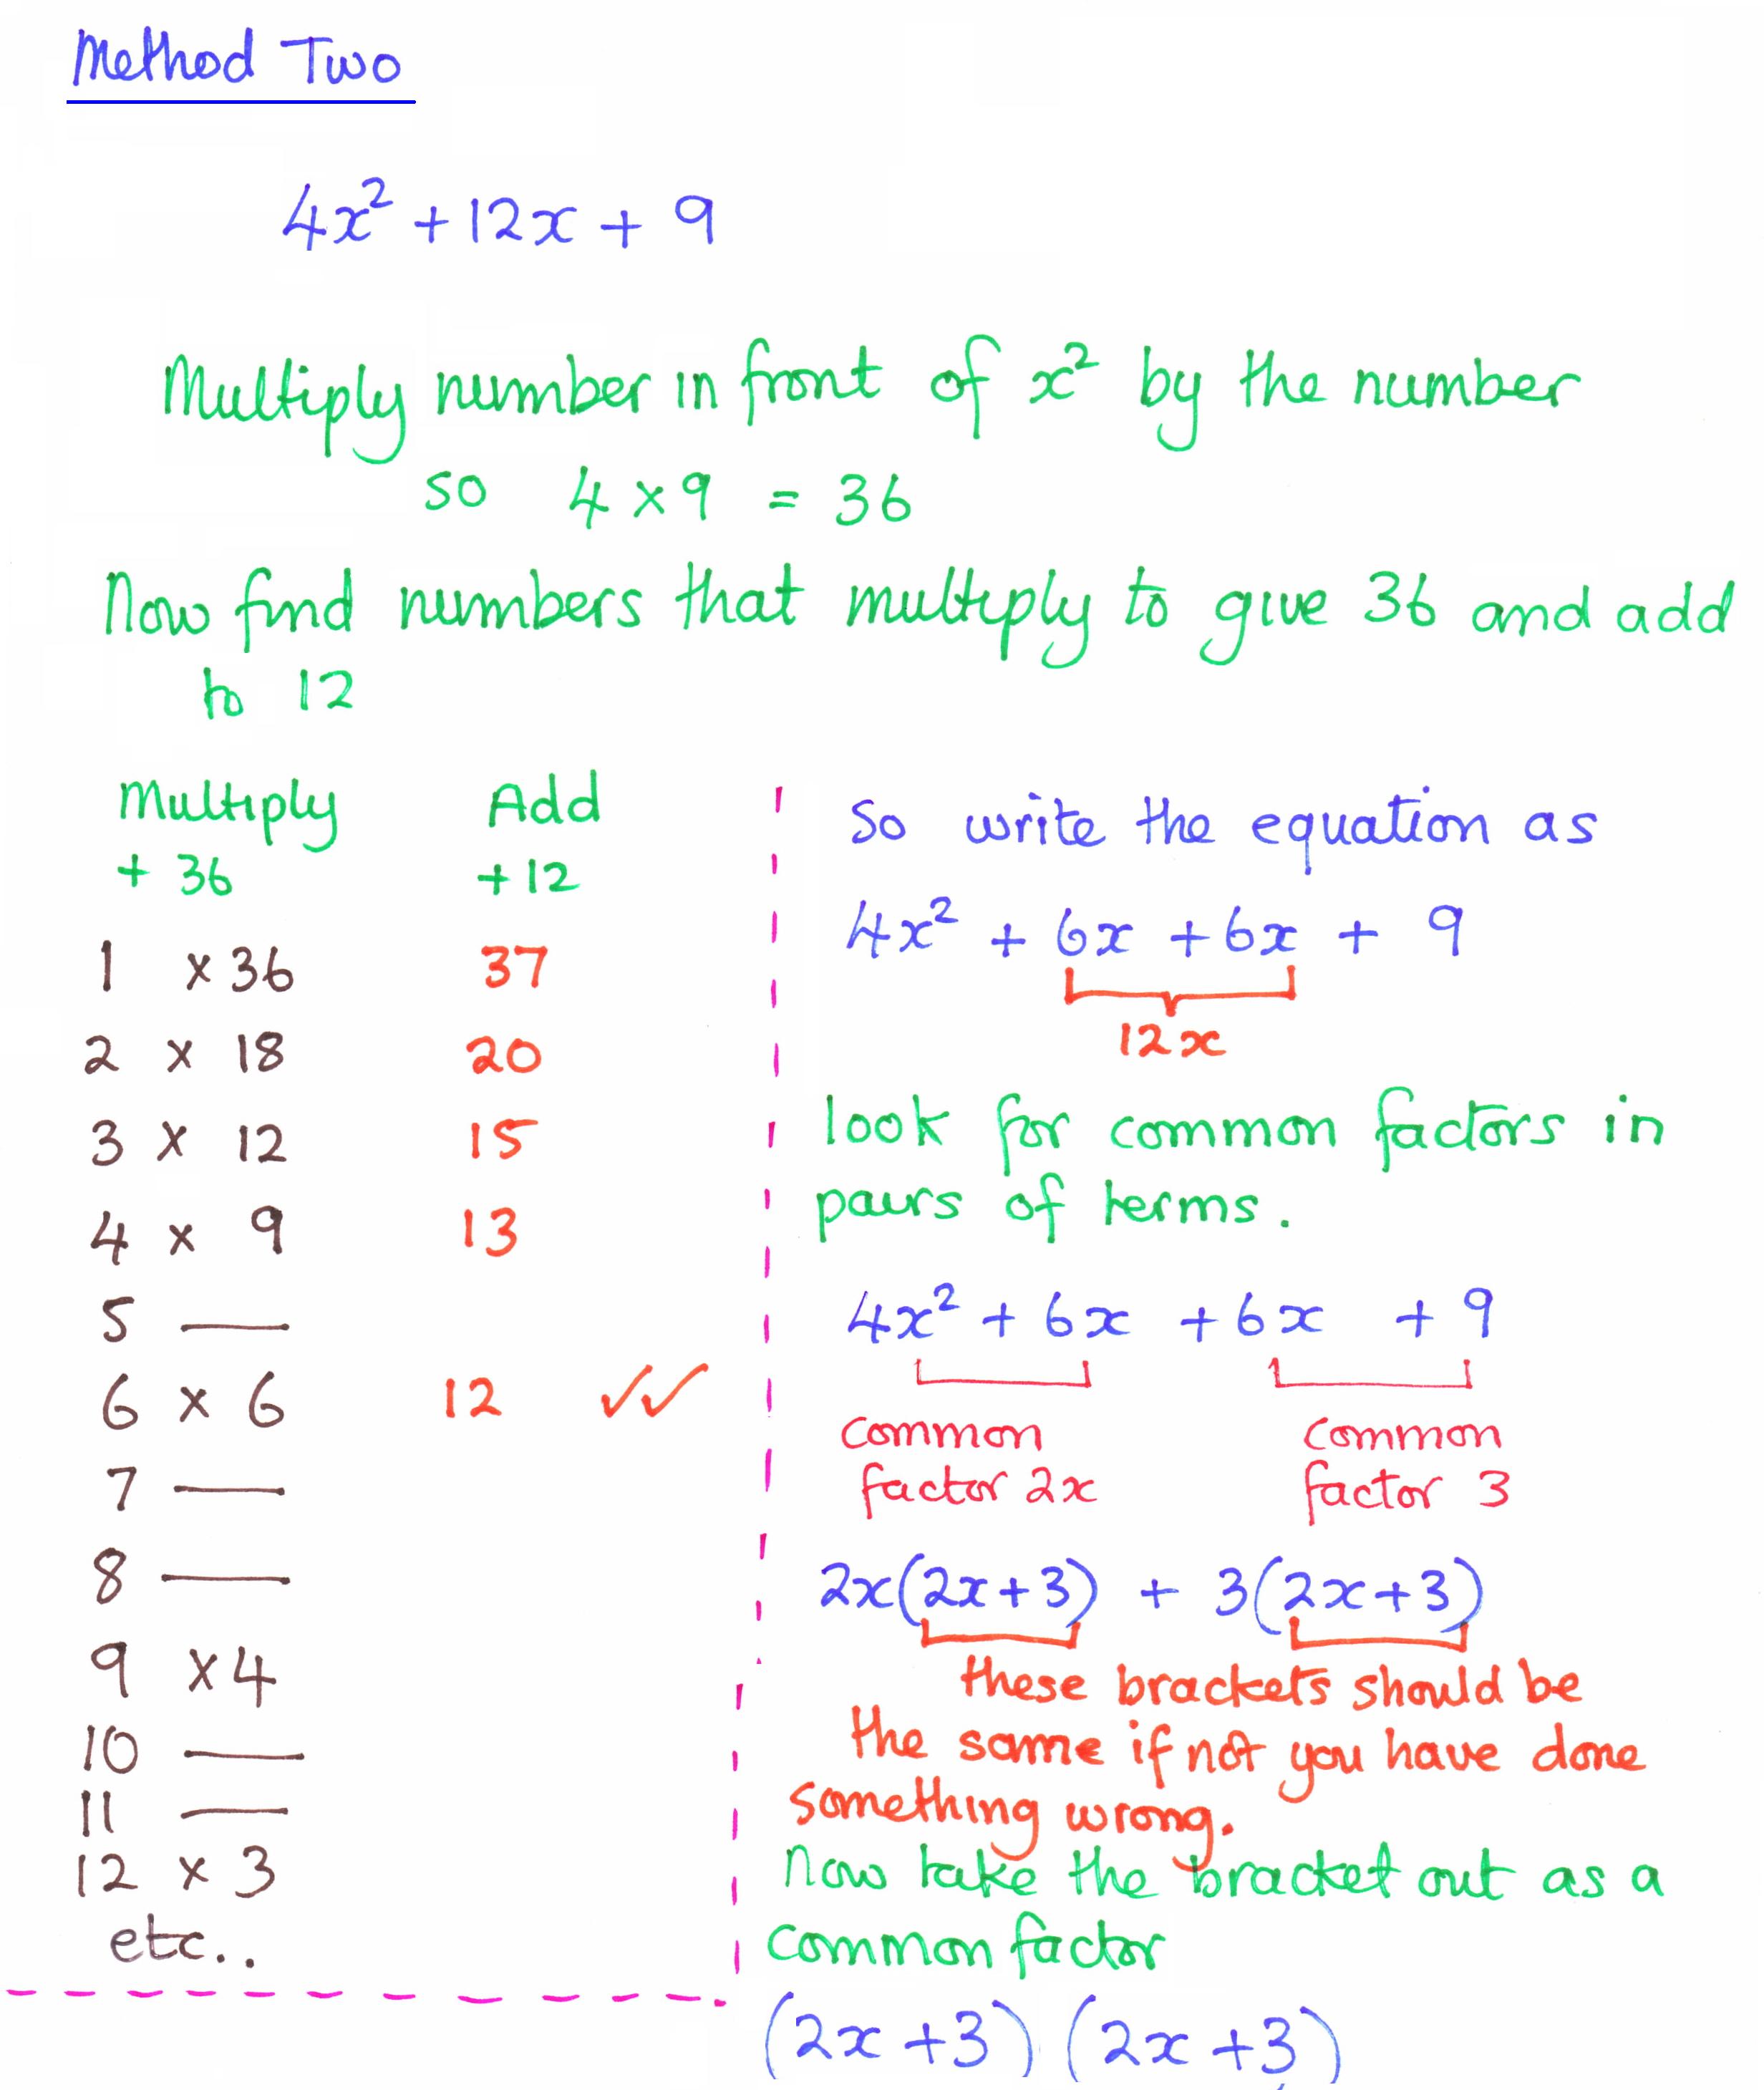 Method Two
4x² + 12x + 9
Multiply number in front of x² by the number
so 4 × 9 = 36
Now find numbers that multiply to give 36 and add
to 12
Multiply Add
+ 36 +12
1 × 36 37
2 × 18 20
3 × 12 15
4 × 9 13
5 —
6 × 6 12 ✓✓
7 —
8 —
9 × 4
10 —
11 —
12 × 3
etc..
So write the equation as
4x² + 6x + 6x + 9
12x
look for common factors in
pairs of terms.
4x² + 6x + 6x + 9
common common
factor 2x factor 3
2x(2x+3) + 3(2x+3)
these brackets should be
the same if not you have done
something wrong.
Now take the bracket out as a
common factor
(2x +3) (2x +3)